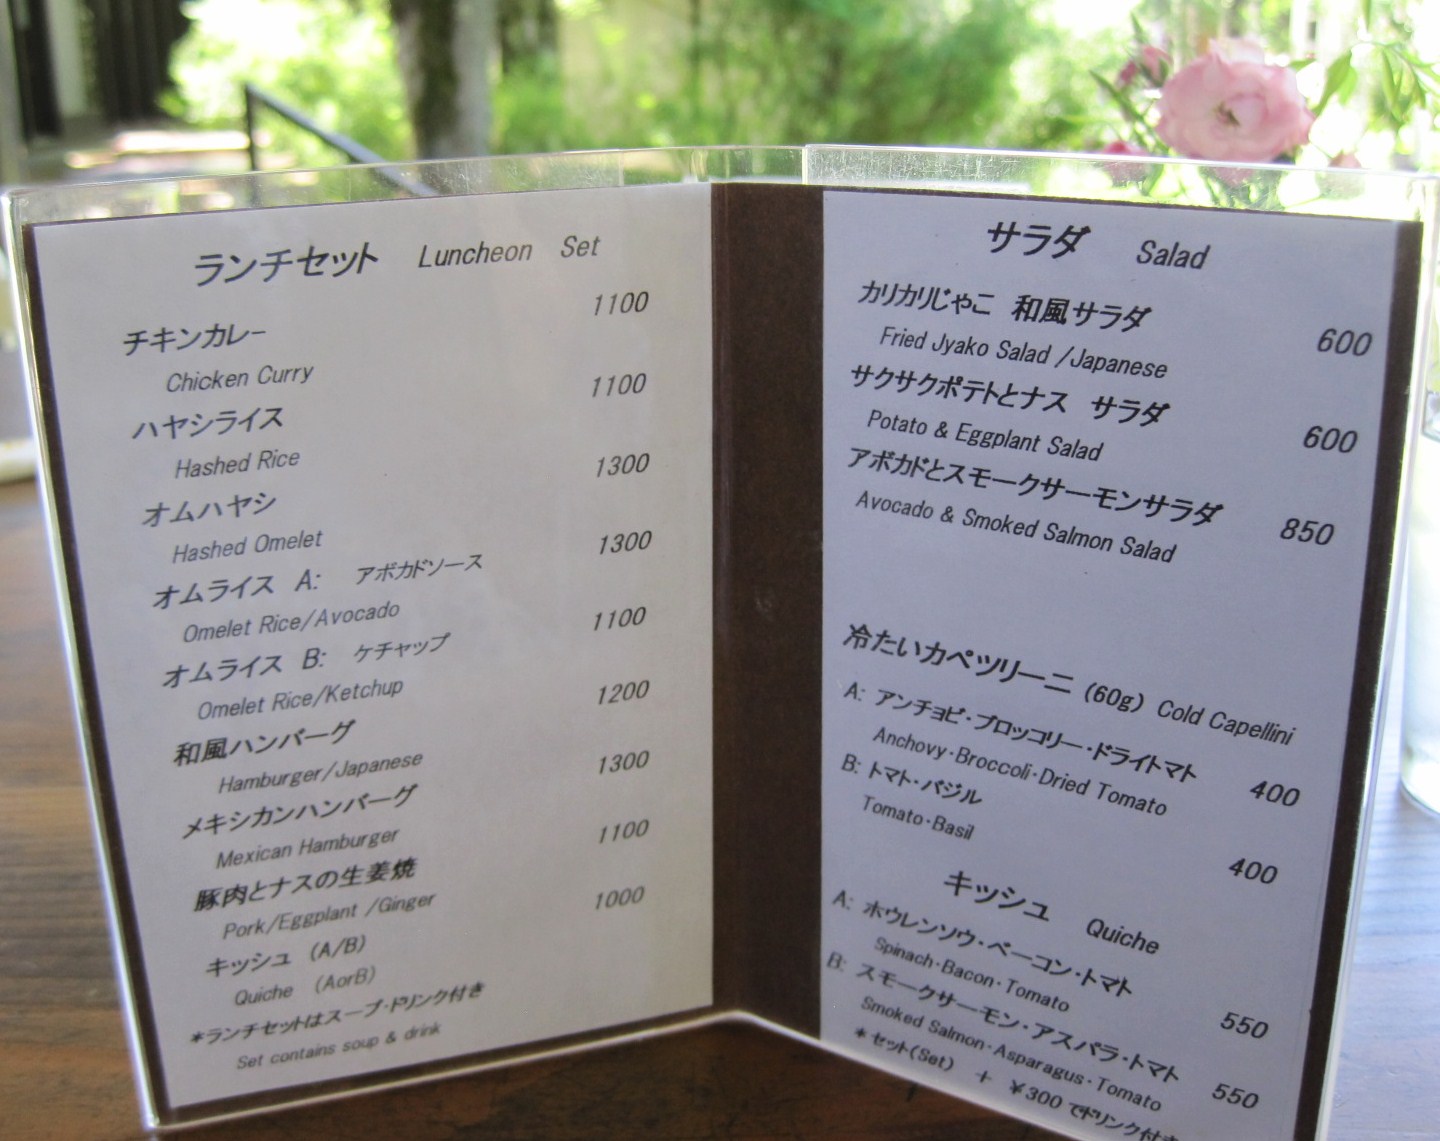 ランチセット Luncheon Set
チキンカレー 1100
Chicken Curry
ハヤシライス 1100
Hashed Rice
オムハヤシ 1300
Hashed Omelet
オムライス A: アボカドソース 1300
Omelet Rice/Avocado
オムライス B: ケチャップ 1100
Omelet Rice/Ketchup
和風ハンバーグ 1200
Hamburger/Japanese
メキシカンハンバーグ 1300
Mexican Hamburger
豚肉とナスの生姜焼 1100
Pork/Eggplant /Ginger
キッシュ (A/B) 1000
Quiche (AorB)
*ランチセットはスープ・ドリンク付き
Set contains soup & drink
サラダ Salad
カリカリじゃこ 和風サラダ 600
Fried Jyako Salad /Japanese
サクサクポテトとナス サラダ 600
Potato & Eggplant Salad
アボカドとスモークサーモンサラダ 850
Avocado & Smoked Salmon Salad
冷たいカペツリーニ (60g) Cold Capellini
A: アンチョビ・ブロッコリー・ドライトマト 400
Anchovy・Broccoli・Dried Tomato
B: トマト・バジル 400
Tomato・Basil
キッシュ Quiche
A: ホウレンソウ・ベーコン・トマト 550
Spinach・Bacon・Tomato
B: スモークサーモン・アスパラ・トマト 550
Smoked Salmon・Asparagus・Tomato
*セット(Set) + ¥300でドリンク付き